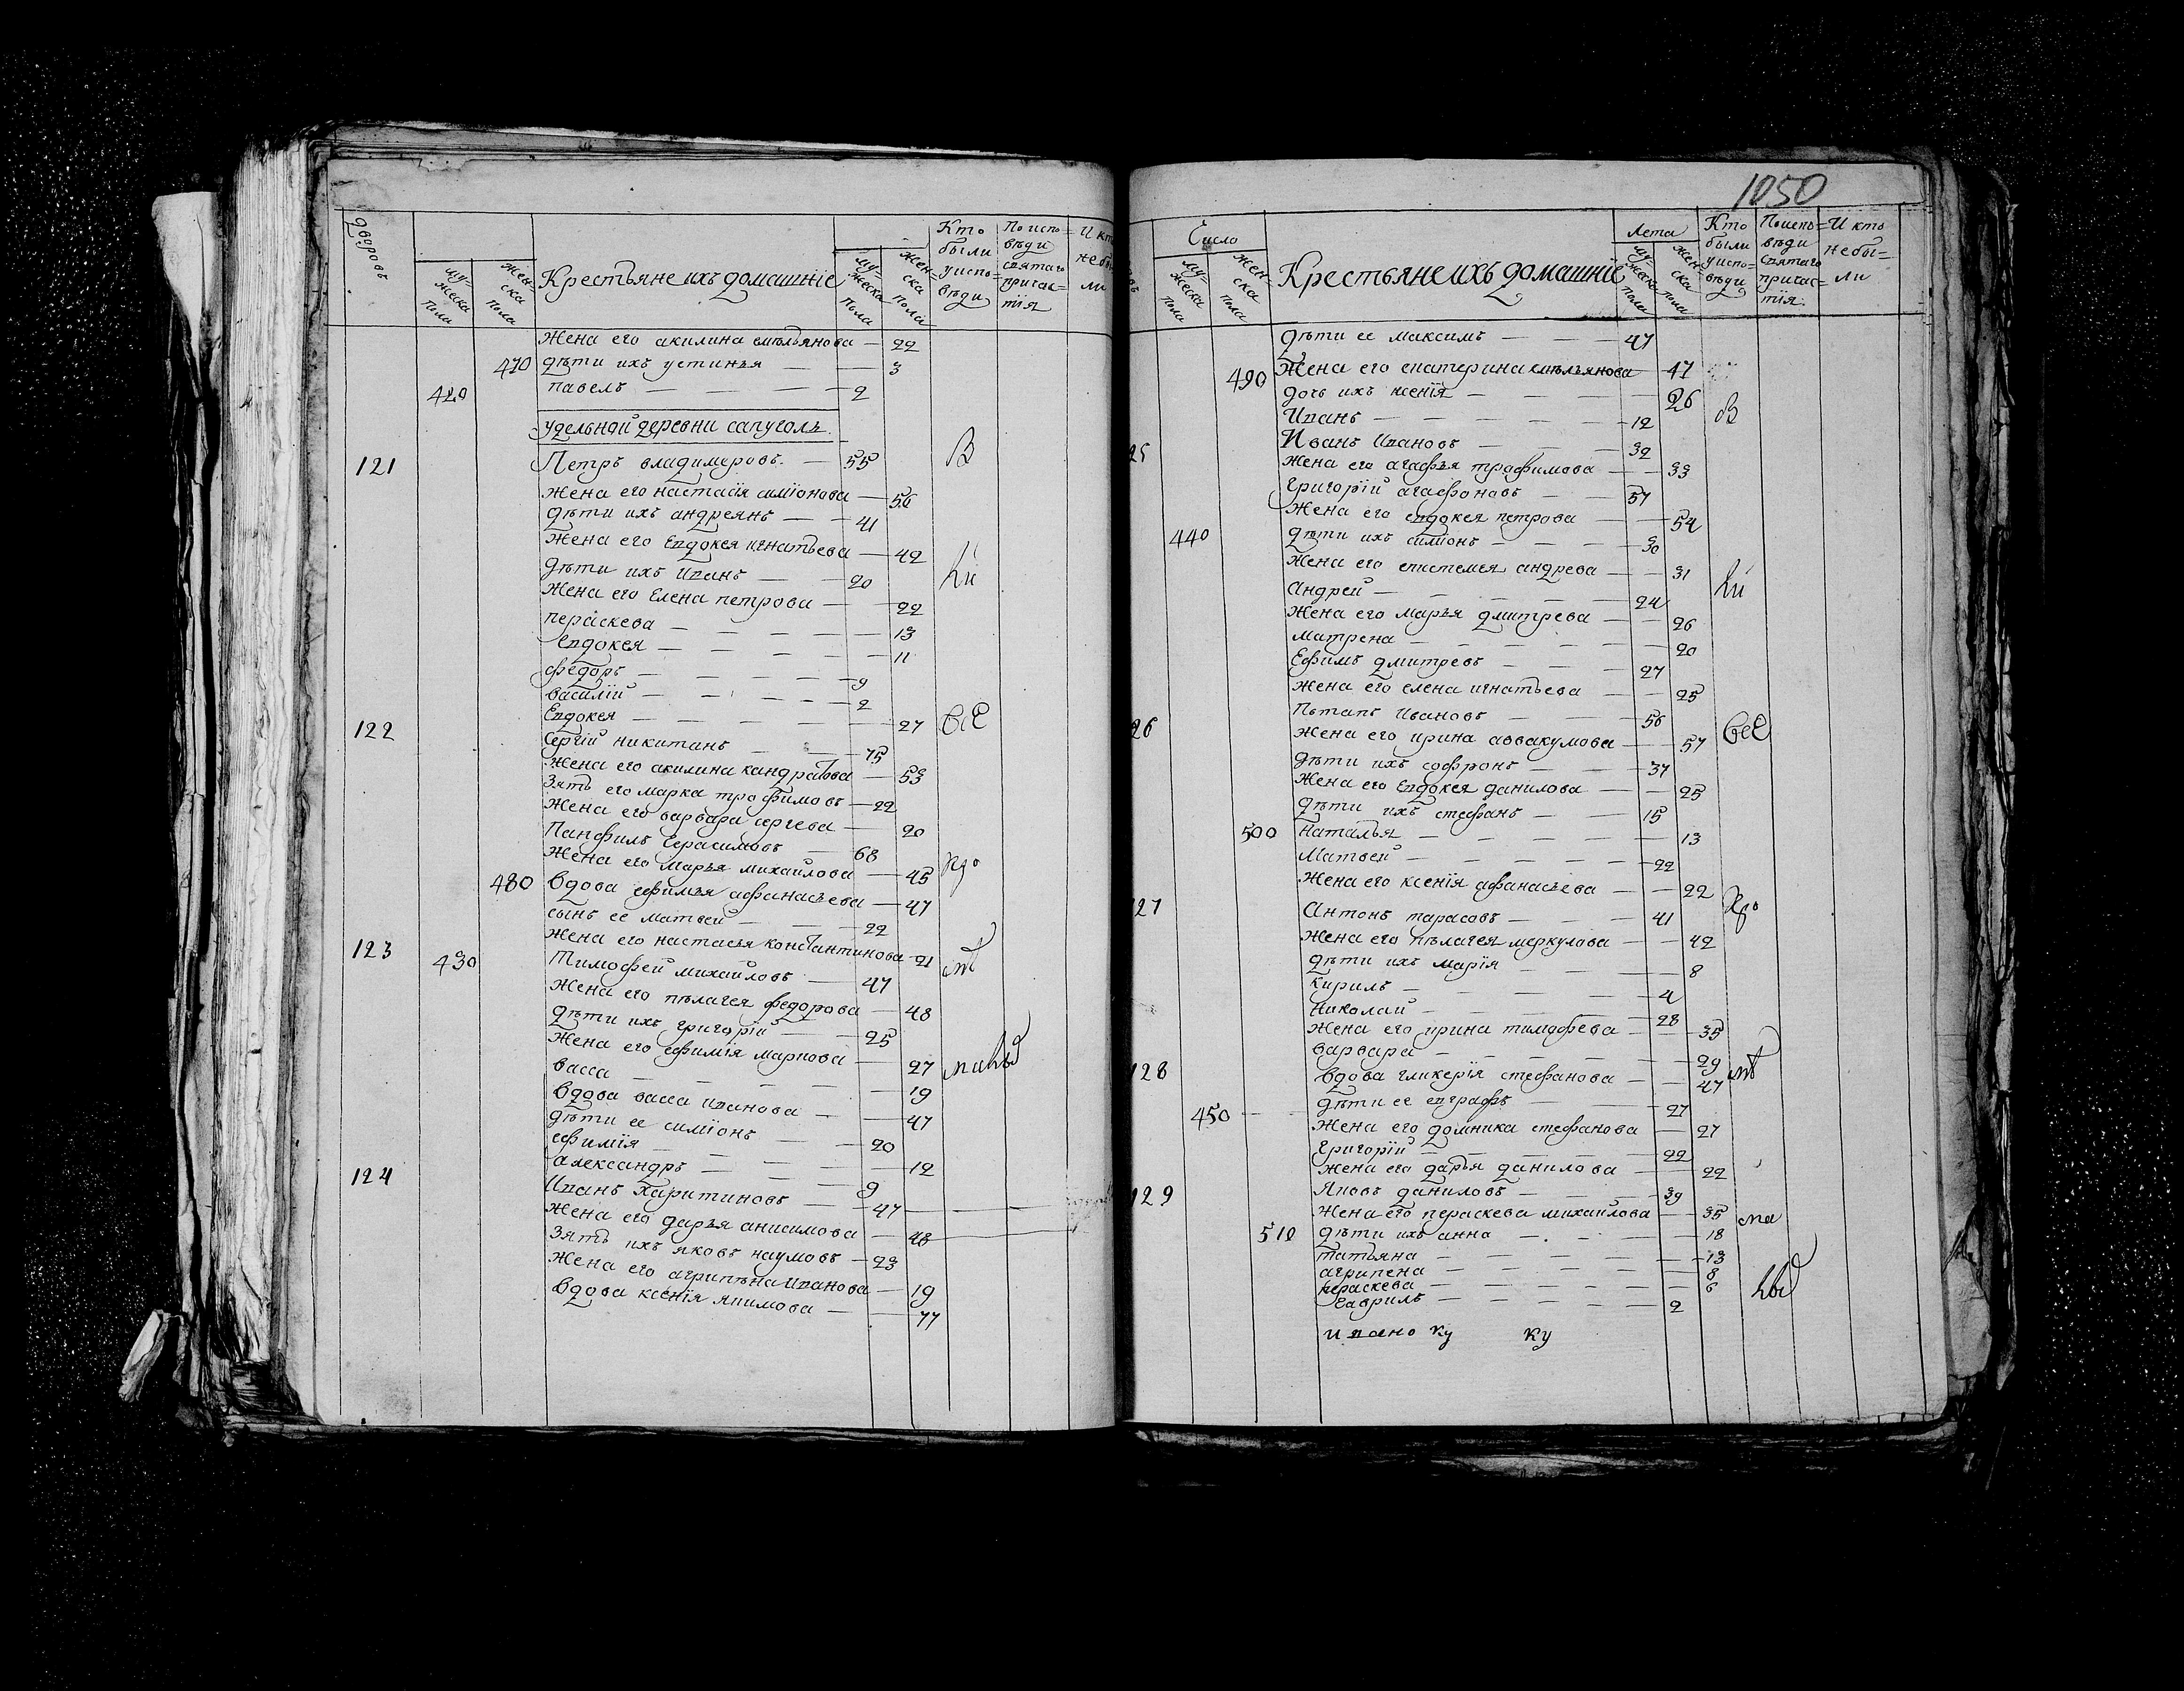 дворовъ
мужеска пола
женска пола
Крестьяне ихъ домашніе
мужеска пола
женска пола
Кто были у исповѣди
По исповѣди святаго причастія
И кт небы ли
Жена его акилина емельянова — 22
470 дѣти ихъ устинья — 3
420 павелъ — 2
удельной деревни сапуголъ
121 Петръ владимеровъ — 55 В
Жена его настасія симіонова — 56
дѣти ихъ андреянъ — 41
Жена его Евдокея игнатьева — 42
дѣти ихъ иванъ — 20
Жена его Елена петрова — 22
пераскева — 13
Евдокея — 11
федоръ — 9
василій — 2
Евдокея — 27
122 Сергій никитинъ — 75
Жена его акилина кандратова — 53
Зять его марка трофимовъ — 22
Жена его варвара сергева — 20
Панфилъ Герасимовъ — 68
Жена его марья михайлова — 45
480 вдова ефимья афанасьева — 47
сынъ ее матвей — 22
Жена его настасья константинова — 21
123 430 Тимофей михайловъ — 47
Жена его пелагея федорова — 48
дѣти ихъ григорій — 25
Жена его ефимія маркова — 27
васса — 19
вдова васса иванова — 47
дѣти ее симіонъ — 20
ефимія — 12
александръ — 9
124 Иванъ Харитиновъ — 47
Жена его дарья анисимова — 48
Зять ихъ яковъ наумовъ — 23
Жена его агрипѣна иванова — 19
вдова ксенія якимова — 77
1050
Число
мужеска пола
женска пола
Крестьяне ихъ домашніе
Лета
мужеска пола
женска пола
Кто были у исповѣди
По исповѣди святаго причастія
И кто небыли
дѣти ее максимъ — 47
Жена его екатерина емельянова — 47
490 дочь ихъ ксенія — 26
Иванъ — 12 В
25 Иванъ Ивановъ — 32
Жена его агафья трофимова — 33
григорій агафоновъ — 57
Жена его евдокея петрова — 54
440 дѣти ихъ симионъ — 30
Жена его епистемея андрева — 31
андрей — 24
Жена его марья дмитрева — 26
матрена — 20
Ефимъ дмитревъ — 27
Жена его елена игнатьева — 25
26 Потапъ ивановъ — 56
Жена его ирина аввакумова — 57
дѣти ихъ софронъ — 37
Жена его Евдокея данилова — 25
дѣти ихъ стефанъ — 15
500 наталья — 13
Матвей — 22
Жена его ксенія афанасьева — 22
27 Антонъ тарасовъ — 41
Жена его пелагея меркулова — 42
дѣти ихъ марія — 8
Кирилъ — 4
николай — 28
Жена его ирина тимофева — 35
варвара — 29
128 вдова гликерія стефанова — 47
450 дѣти ее евграфъ — 27
Жена его домника стефанова — 27
Григорій — 22
Жена его дарья данилова — 22
129 Яковъ даниловъ — 39
Жена его пераскева михайлова — 35
510 дѣти ихъ анна — 18
татьяна — 13
агрипена — 8
пераскева — 6
Гаврилъ — 2